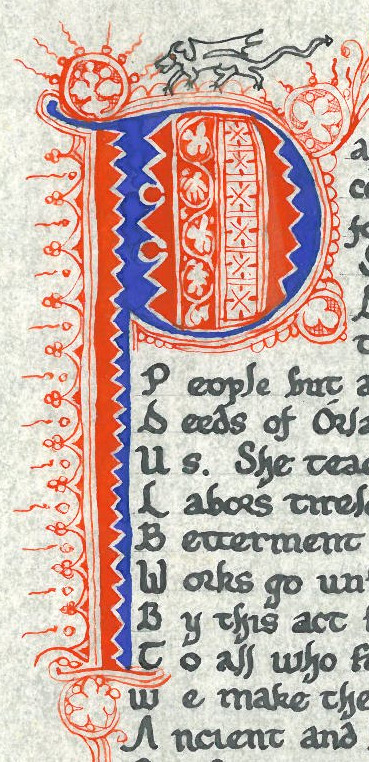 P
a
co
fo
S
t
P eople but a
D eeds of Orla
U s. She teac
L abors tirele
B etterment
W orks go un
B y this act
T o all who
w e make the
A ncient and